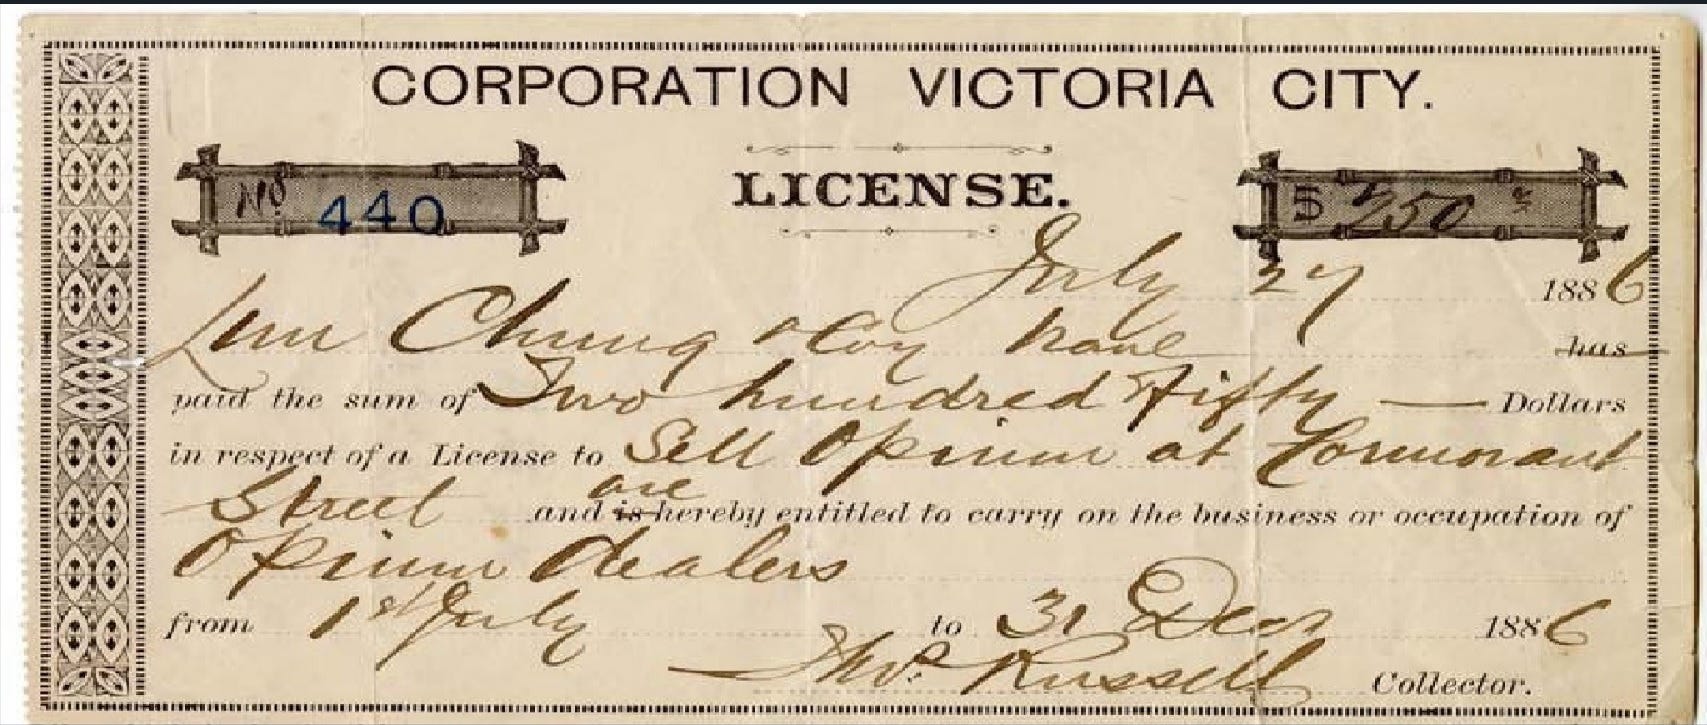 CORPORATION VICTORIA CITY.
No 440
LICENSE.
$ 250
July 27 1886
Chung have has
paid the sum of Two hundred Fifty — Dollars
in respect of a License to Sell Opium at Cormorant
Street and is are hereby entitled to carry on the business or occupation of
Opium dealers
from 1st July to 31 Decr 1886
Thos. Russell Collector.